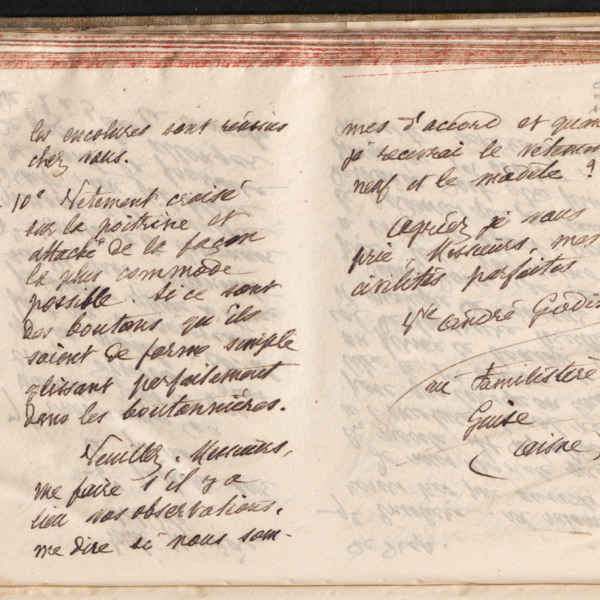 les encolures sont réussies
chez vous.
- 10° Vêtement croisé
sur la poitrine et
attaché de la façon
la plus commode
possible. Si ce sont
des boutons qu'ils
soient de forme simple
glissant parfaitement
dans les boutonnières.
Veuillez, Messieurs,
me faire s'il y a
lieu vos observations,
me dire si nous som-
mes d'accord et quan
je recevrai le vêtemen
neuf et le modèle ?
Agréez je vous
prie, Messieurs, mes
civilités parfaites
Vve André Godin
au Familistère
Guise
(Aisne)